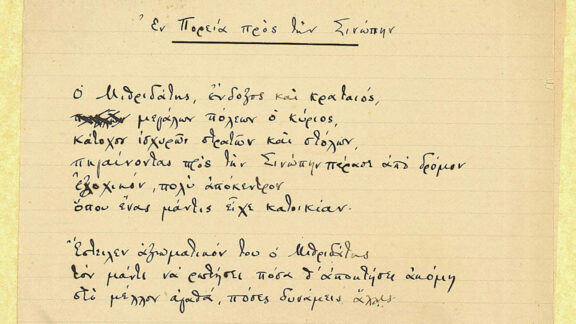 Ἐν Πορείᾳ πρὸς τὴν Σινώπην
Ὁ Μιθριδάτης, ἔνδοξος καὶ κραταιός,
μεγάλων πόλεων ὁ κύριος,
κάτοχος ἰσχυρῶν στρατῶν καὶ στόλων,
πηγαίνοντας πρὸς τὴν Σινώπην πέρασε ἀπὸ δρόμον
ἐξοχικόν, πολὺ ἀπόκεντρον
ὅπου ἕνας μάντις εἶχε κατοικίαν.
Ἔστειλεν ἀξιωματικόν του ὁ Μιθριδάτης
τὸν μάντι νὰ ρωτήσει πόσα θ' ἀποκτήσει ἀκόμη
στὸ μέλλον ἀγαθά, πόσες δυνάμεις ἄλλες.